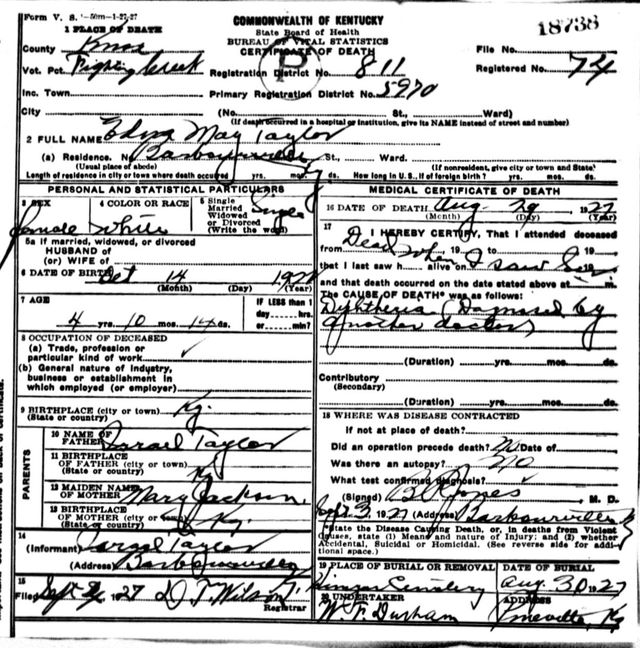 Form V. S. 1-50m-1-27-27
COMMONWEALTH OF KENTUCKY
State Board of Health
BUREAU OF VITAL STATISTICS
CERTIFICATE OF DEATH
18738
1 PLACE OF DEATH
County Knox
File No.
Vot. Pct. Fighting Creek
Registration District No. 811
Registered No. 74
P
Inc. Town
Primary Registration District No. 5970
City (No. St., Ward)
(If death occurred in a hospital or institution, give its NAME instead of street and number)
2 FULL NAME Edna May Taylor
(a) Residence. No. Barbourville St., Ward.
(Usual place of abode) (If nonresident, give city or town and State)
Length of residence in city or town where death occurred yrs. mos. ds. How long in U. S., if of foreign birth? yrs. mos. ds.
PERSONAL AND STATISTICAL PARTICULARS
3 SEX Female
4 COLOR OR RACE White
5 Single Married Widowed or Divorced (Write the word) Single
5a If married, widowed, or divorced
HUSBAND of
(or) WIFE of
6 DATE OF BIRTH Oct 14 1922
(Month) (Day) (Year)
7 AGE
4 yrs. 10 mos. 14 ds.
IF LESS than 1
day----hrs.
or----min?
8 OCCUPATION OF DECEASED
(a) Trade, profession or
particular kind of work
(b) General nature of industry,
business or establishment in
which employed (or employer)
9 BIRTHPLACE (city or town) Ky.
(State or country)
PARENTS
10 NAME OF
FATHER Taylor
11 BIRTHPLACE
OF FATHER (city or town)
(State or country) Ky
12 MAIDEN NAME
OF MOTHER Mary Jackson
13 BIRTHPLACE
OF MOTHER (city or town) Ky.
(State or country)
14
(Informant) Taylor
(Address) Barbourville
15
Filed Sept 1927 D. T. Wilson
Registrar
MEDICAL CERTIFICATE OF DEATH
16 DATE OF DEATH Aug. 29 1927
(Month) (Day) (Year)
17 I HEREBY CERTIFY, That I attended deceased
from Dead when, 19 to I saw her, 19
that I last saw h alive on , 19
and that death occurred on the date stated above at m.
The CAUSE OF DEATH* was as follows:
Diphtheria (Diagnosed by
another doctor)
(Duration) yrs. mos. ds.
Contributory
(Secondary)
(Duration) yrs. mos. ds.
18 WHERE WAS DISEASE CONTRACTED
If not at place of death?
Did an operation precede death? No Date of
Was there an autopsy? No
What test confirmed diagnosis?
(Signed) Jones M. D.
Sept 3, 1927 (Address) Barbourville Ky
*State the Disease Causing Death, or, in deaths from Violent
Causes, state (1) Means and nature of Injury; and (2) whether
Accidental, Suicidal or Homicidal. (See reverse side for additional space.)
19 PLACE OF BURIAL OR REMOVAL
Cemetery
DATE OF BURIAL
Aug. 30 1927
20 UNDERTAKER
W. F. Durham
ADDRESS
Pineville, Ky